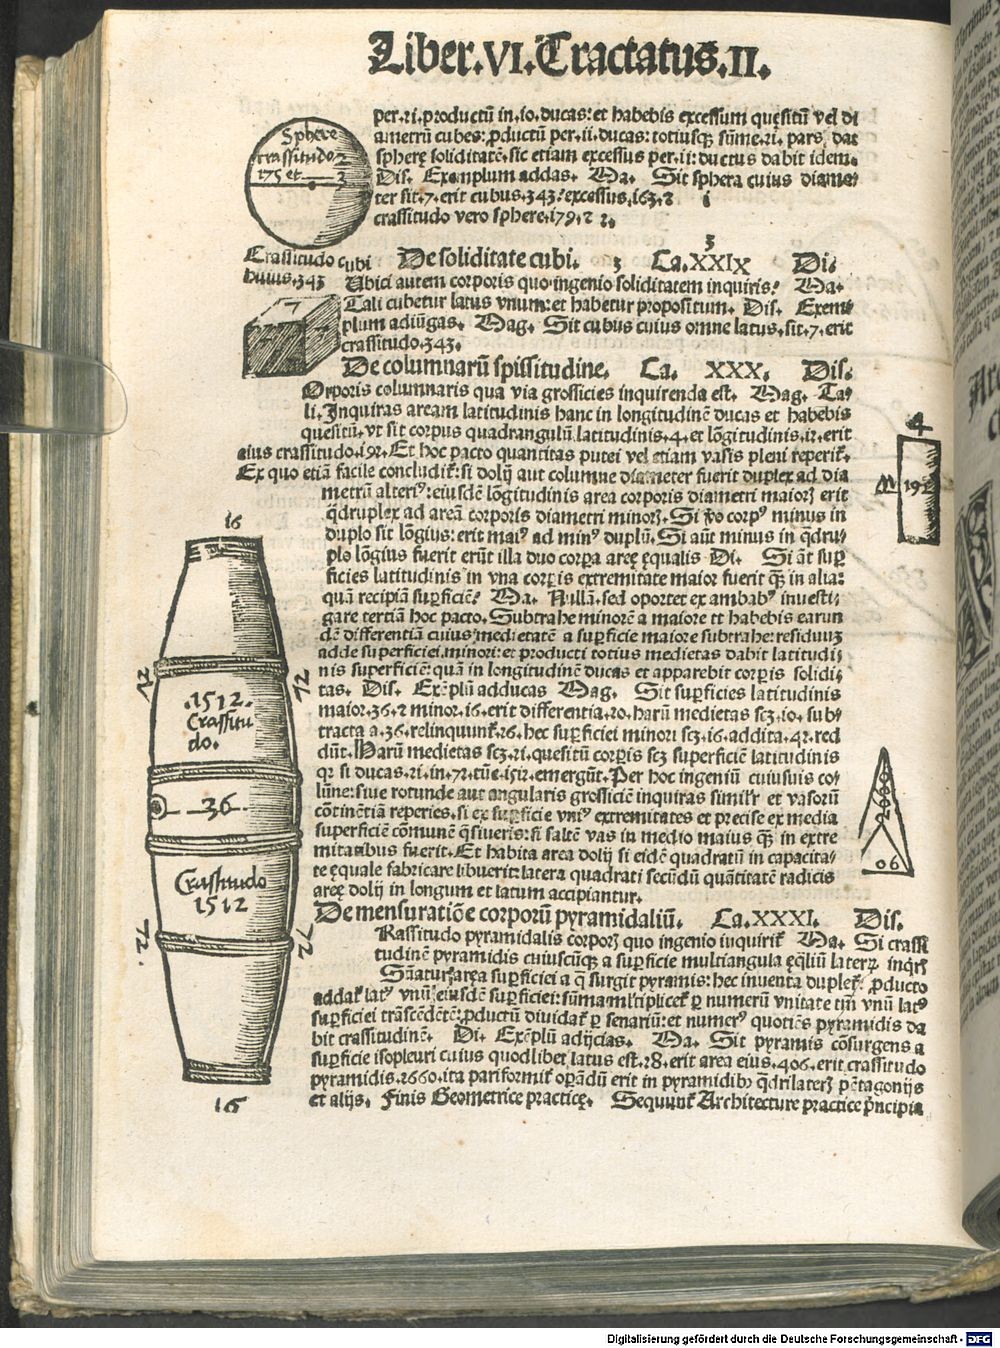 Liber.VI.Tractatus.II.
per.zi.productū in.io.ducas: et habebis excessum quęsitū vel di
ametrū cubes: ꝓductū per.ii.ducas: totiusqꝫ sūme.zi. pars dat
spherę soliditatē. sic etiam excessus per.ii: ductus dabit idem.
Dis. Exemplum addas. Ma. Sit sphera cuius diame-
ter sit.7.erit cubus.343. excessus.163.z
crassitudo vero sphere.179.z
Sphere
crassitudo
175 et
Crassitudo cubi
huius.343
De soliditate cubi. Ca.XXIX Di-
Ubici autem corporis quo ingenio soliditatem inquiris? Ma.
Tali cubetur latus vnum: et habetur propositum. Dis. Exem-
plum adiūgas. Mag. Sit cubus cuius omne latus. sit.7. erit
crassitudo.343.
7
De columnarū spissitudine. Ca. XXX. Dis.
Orporis columnaris qua via grossicies inquirenda est. Mag. Ta-
li. Inquiras aream latitudinis hanc in longitudinē ducas et habebis
quesitū. vt sit corpus quadrangulū latitudinis.4. et lōgitudinis.12. erit
eius crassitudo.192. Et hoc pacto quantitas putei vel etiam vasis pleni reperit.
Ex quo etiā facile concludit: si dolij aut columne diameter fuerit duplex ad dia
metrū alteriꝰ: eiusdē lōgitudinis area corporis diametri maioris erit
q̄druplex ad areā corporis diametri minoris. Si ꝟo corpꝰ minus in
duplo sit lōgius: erit maiꝰ ad minꝰ duplū. Si aūt minus in q̄dru-
plo lōgius fuerit erūt illa duo corpora areę ęqualis Di. Si āt suꝑ
ficies latitudinis in vna corꝑis extremitate maior fuerit qꝫ in alia:
quā recipiā suꝑficiē? Ma. Nullā. sed oportet ex ambabꝰ investi-
gare tertiam hoc pacto. Subtrahe minorē a maiore et habebis earun
dē differentiā cuius medietatē a suꝑficie maiore subtrahe: residuuꝫ
adde suꝑficiei. minori: et producti totius medietas dabit latitudi-
nis superficiē: quā in longitudinē ducas et apparebit corꝑis solidi-
tas. Dis. Exēplū adducas Mag. Sit suꝑficies latitudinis
maior.36.z minor.16.erit differentia.20.harū medietas scꝫ.10. sub-
tracta a.36.relinquunt.26. hec suꝑficiei minori scꝫ.16 addita.42.red
dūt. Harū medietas scꝫ.21.quesitū corꝑis scꝫ superficiē latitudinis
qꝛ si ducas.21.in.72.tūc.1512.emergūt. Per hoc ingeniū cuiusuis co-
lūne: siue rotunde aut angularis grossiciē inquiras similr et vasorū
cōtinētiā reperies. si ex suꝑficie vniꝰ extremitates et precise ex media
superficiē cōmunē q̄siueris: si saltē vas in medio maius qꝫ in extre
mitatibus fuerit. Et habita area dolij si eidē quadratū in capacita-
te ęquale fabricare libuerit: latera quadrati secūdū quātitatē radicis
areę dolij in longum et latum accipiantur.
4
192
16
72
72
.1512.
Crassitu
do.
36
Crassitudo
1512
72.
72
16
06
De mensuratiōe corporū pyramidaliū. Ca.XXXI. Dis.
Rassitudo pyramidalis corporis quo ingenio inquirit Ma. Si crassi
tudinē pyramidis cuiuscūqꝫ a suꝑficie multiangula ęq̄liū laterꝫ inq̄ris
Sūmatur area suꝑficiei a q̄ surgit pyramis: hec inventa duplet. ꝓducto
addat latꝰ vnū eiusdē suꝑficiei: sūma mltiplicet ꝑ numerū vnitate tm̄ vnū latꝰ
suꝑficiei trāscēdētē: ꝓductū diuidat ꝑ senariū: et numerꝰ quotiēs pyramidis da
bit crassitudinē. Di. Exēplū adijcias. Ma. Sit pyramis cōsurgens a
suꝑficie isopleuri cuius quodlibet latus est.28.erit area eius.406.erit crassitudo
pyramidis.1660.ita pariformit oꝑādū erit in pyramidibꝫ q̄drilateris pētagonijs
et alijs. Finis Geometrice practicę. Sequunt Architecture practice p̄ncipia
Digitalisierung gefördert durch die Deutsche Forschungsgemeinschaft - DFG